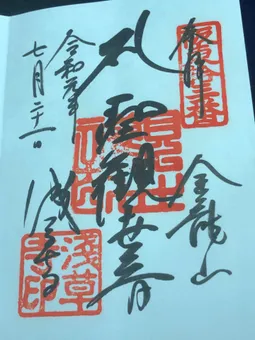 坂東拾三番
奉拝
金龍山
聖觀世音
浅草寺
令和元年
七月二十一日
淺草寺印